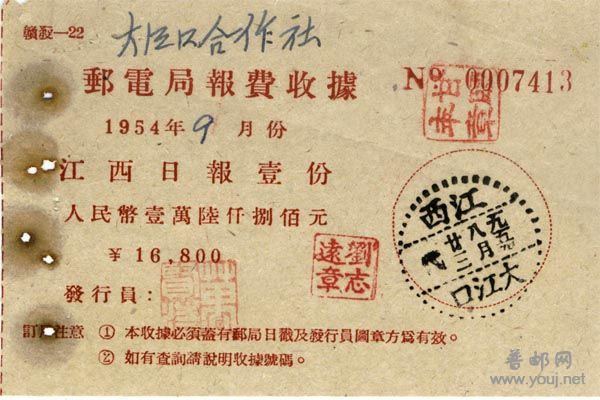 贛郵—22
大江口合作社
郵電局報費收據
No 0007413
1954年9月份
江西日報壹份
人民幣壹萬陸仟捌佰元
¥16,800
發行員：
劉志遠章
江西
一九五四
八月
廿三
大江口
訂戶注意 ① 本收據必須蓋有郵局日戳及發行員圖章方爲有效。
② 如有查詢請說明收據號碼。
普邮网
www.youj.net